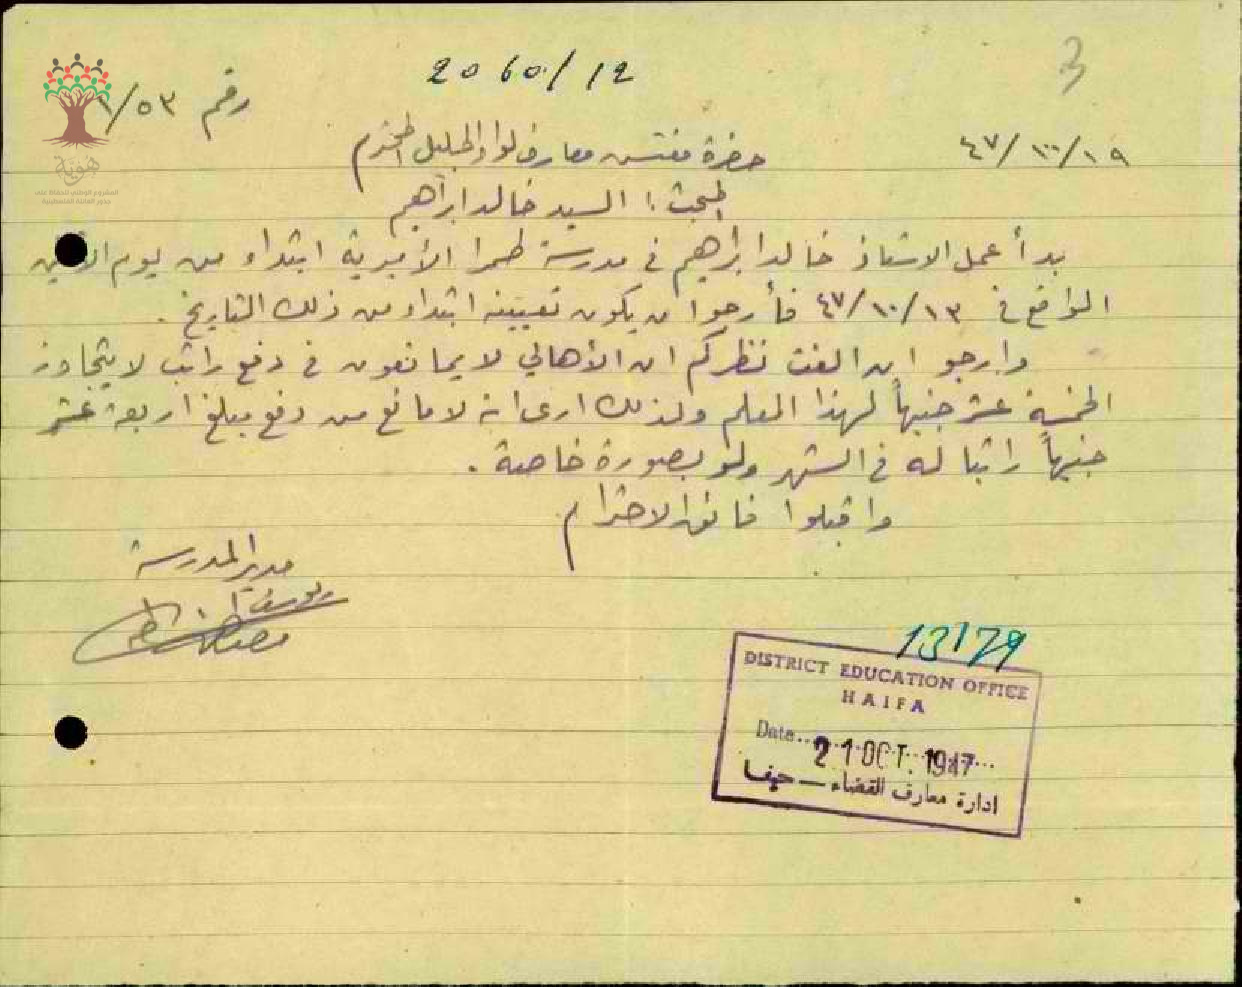 3
2060/12
رقم ١/٥٣
٤٧/١٠/١٩
حضرة مفتش معارف لواء الجليل المحترم
المبحث: السيد خالد ابراهيم
بدأ عمل الاستاذ خالد ابراهيم في مدرسة طمرا الأميرية ابتداء من يوم الاثنين
الواقع في ٤٧/١٠/١٣ فأرجو ان يكون تعيينه ابتداء من ذلك التاريخ.
وارجو ان الفت نظركم ان الأهالي لا يمانعون في دفع راتب لا يتجاوز
الخمسة عشر جنيهاً لهذا المعلم ولذلك ارى انه لا مانع من دفع مبلغ اربعة عشر
جنيهاً راتبا له في الشهر ولو بصورة خاصة.
واقبلوا فائق الاحترام
مدير المدرسة
13179
DISTRICT EDUCATION OFFICE
HAIFA
Date... 21 OCT. 1947...
ادارة معارف القضاء — حيفا
هوية